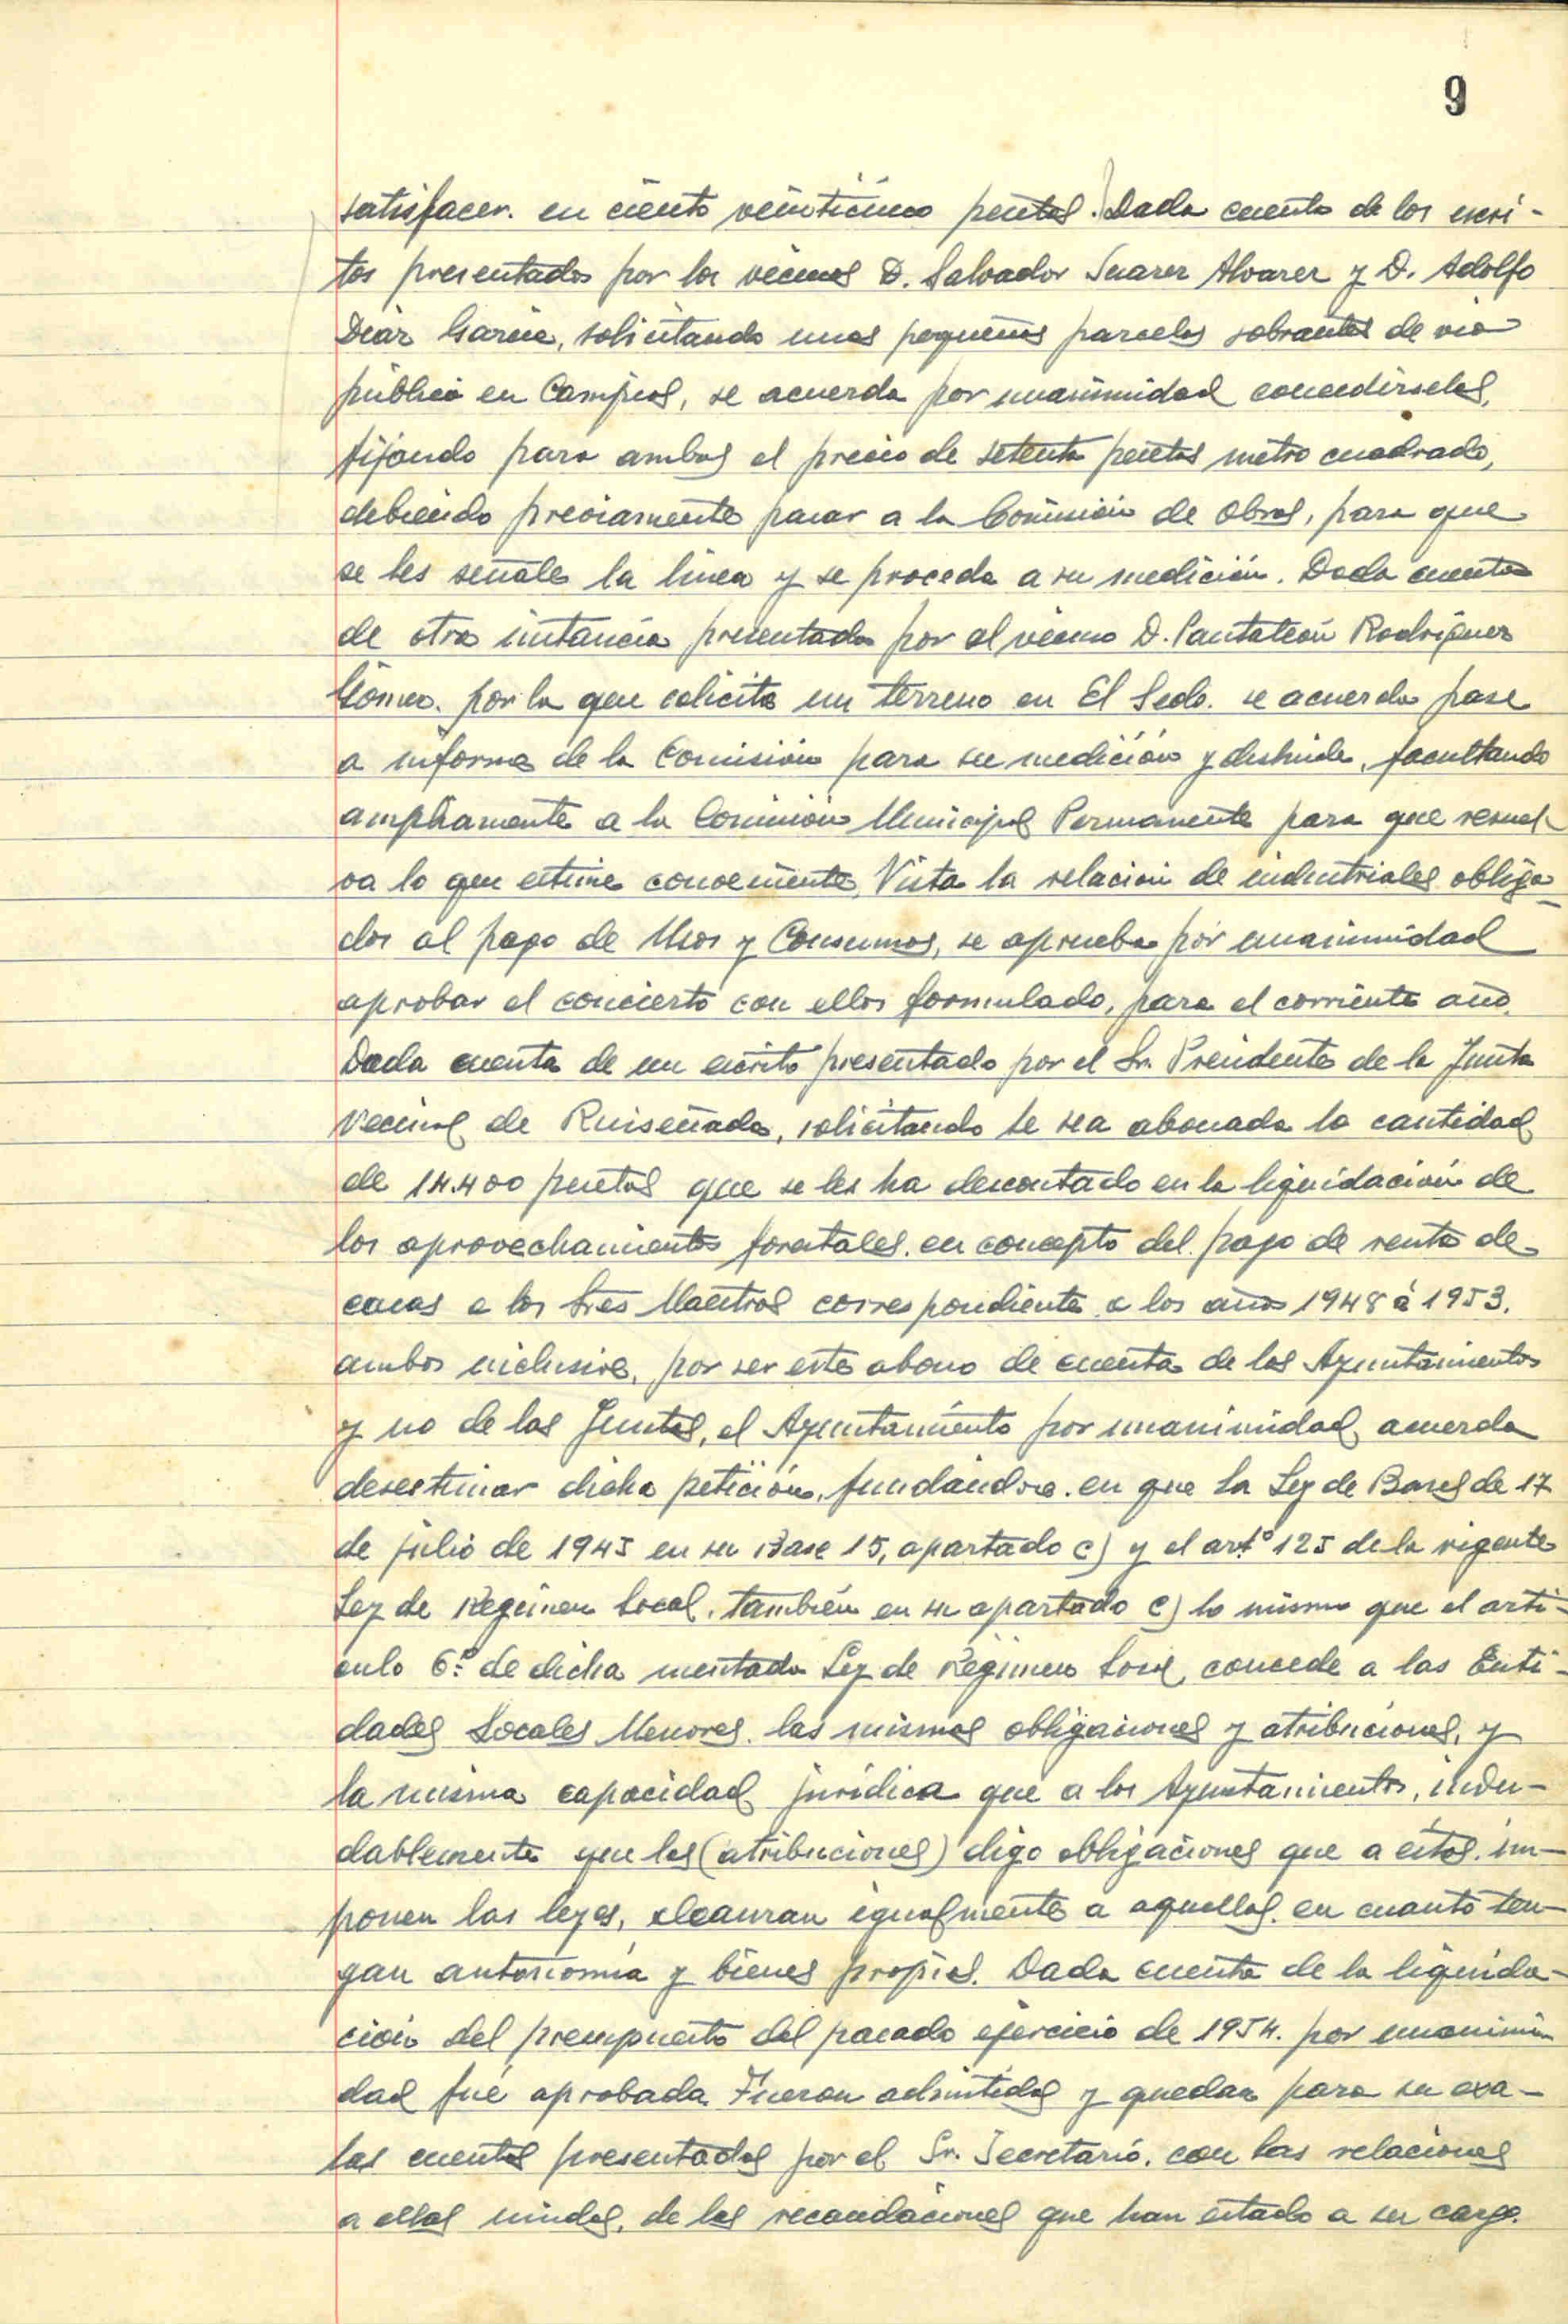 9
satisfacer. en ciento veinticinco pesetas. Dada cuenta de los escri-
tos presentados por los vecinos D. Salvador Suarez Alvarez y D. Adolfo
Diaz Garcia, solicitando unas pequeñas parcelas sobrantes de via
pública en Campios, se acuerda por unanimidad concedérselas,
fijando para ambos el precio de setenta pesetas metro cuadrado,
debiendo previamente pasar a la Comisión de Obras, para que
se les señale la linea y se proceda a su medición. Dada cuenta
de otra instancia presentada por el vecino D. Pantaleón Rodriguez
Gómez. por la que solicita un terreno en El Sedo. se acuerda pase
a informe de la Comisión para su medición y deslinde, facultando
ampliamente a la Comisión Municipal Permanente para que resuel-
va lo que estime conveniente. Vista la relación de industriales obliga-
dos al pago de Usos y Consumos, se aprueba por unanimidad
aprobar el concierto con ellos formulado, para el corriente año.
Dada cuenta de un escrito presentado por el Sr. Presidente de la Junta
Vecinal de Ruiseñada, solicitando le sea abonada la cantidad
de 14.400 pesetas que se les ha descontado en la liquidación de
los aprovechamientos forestales. en concepto del pago de renta de
casas a los Sres Maestros correspondiente a los años 1948 á 1953.
ambos inclusive, por ser este abono de cuenta de los Ayuntamientos
y no de las Juntas, el Ayuntamiento por unanimidad, acuerda
desestimar dicha petición, fundándose. en que la Ley de Bases de 17
de julio de 1945 en su Base 15, apartado c) y el artº 125 de la vigente
Ley de Régimen Local. también en su apartado c) lo mismo que el artí-
culo 6.º de dicha mentada Ley de Régimen Local, concede a las Enti-
dades Locales Menores. las mismas obligaciones y atribuciones, y
la misma capacidad jurídica que a los Ayuntamientos, indu-
dablemente que las (atribuciones) digo obligaciones que a éstos. im-
ponen las leyes, alcanzan igualmente a aquellas. en cuanto ten-
gan autonomía y bienes propios. Dada cuenta de la liquida-
ción del presupuesto del pasado ejercicio de 1954. por unanimi-
dad fué aprobada. Fueron admitidas y quedan para su exa-
las cuentas presentadas por el Sr. Secretario. con las relaciones
a ellas unidas, de las recaudaciones que han estado a su cargo.